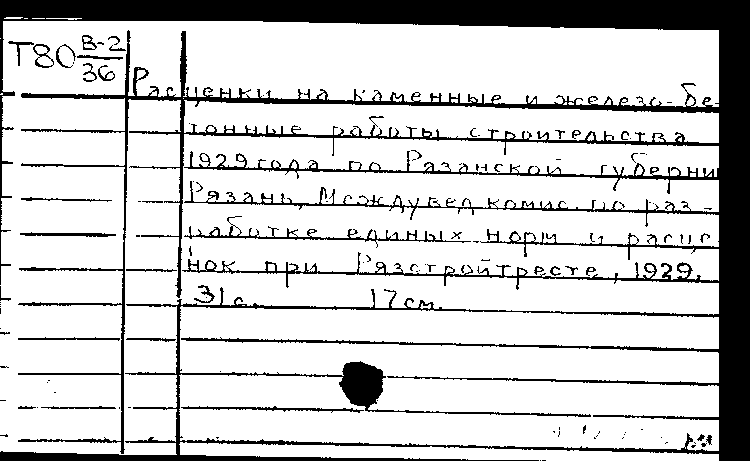 Т80 В-2
36
Расценки на каменные и железо-бе-
тонные работы строительства
1929 года по Рязанской губерни
Рязань, Междувед комис. по раз-
работке единых норм и расце
нок при Рязстройтресте, 1929.
31с. 17см.